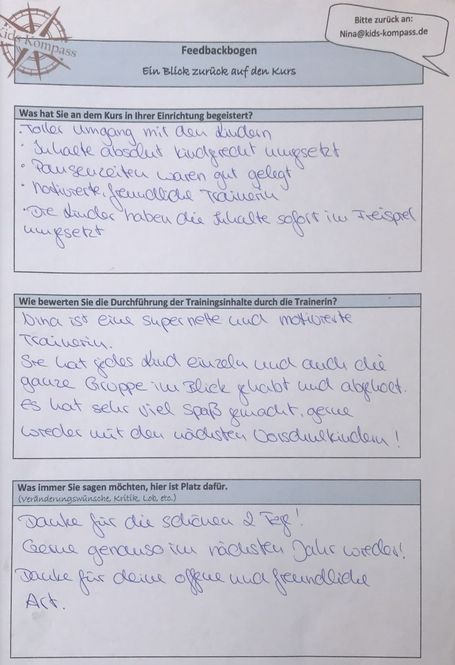 Kids Kompass
Bitte zurück an:
Nina@kids-kompass.de
Feedbackbogen
Ein Blick zurück auf den Kurs
Was hat Sie an dem Kurs in Ihrer Einrichtung begeistert?
· Toller Umgang mit den Kindern
· Inhalte absolut kindgerecht umgesetzt
· Pausenzeiten waren gut gelegt
· motivierte, freundliche Trainerin
· Die Kinder haben die Inhalte sofort im Freispiel
umgesetzt
Wie bewerten Sie die Durchführung der Trainingsinhalte durch die Trainerin?
Dina ist eine supernette und motivierte
Trainerin.
Sie hat jedes Kind einzeln und auch die
ganze Gruppe im Blick gehabt und abgeholt.
Es hat sehr viel Spaß gemacht, gerne
wieder mit den nächsten Vorschulkindern!
Was immer Sie sagen möchten, hier ist Platz dafür.
(Veränderungswünsche, Kritik, Lob, etc.)
Danke für die schönen 2 Tage!
Gerne genauso im nächsten Jahr wieder!
Danke für deine offene und freundliche
Art.